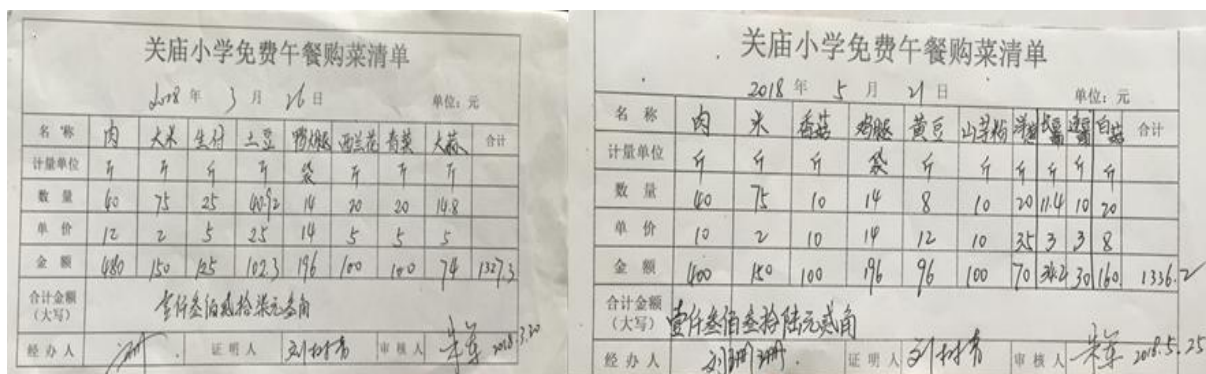 关庙小学免费午餐购菜清单
2018 年 3 月 26 日 单位：元
名 称 肉 大米 生付 土豆 鸭腿 西兰花 青菜 大蒜 合计
计量单位 斤 斤 斤 斤 袋 斤 斤 斤
数 量 40 75 25 40.92 14 20 20 14.8
单 价 12 2 5 2.5 14 5 5 5
金 额 480 150 125 102.3 196 100 100 74 1327.3
合计金额（大写） 壹仟叁佰贰拾柒元叁角
经 办 人 证 明 人 刘树青 审 核 人 朱军 2018.3.30
关庙小学免费午餐购菜清单
2018 年 5 月 21 日 单位：元
名 称 肉 米 香菇 鸡腿 黄豆 山芋粉 白菇 合计
计量单位 斤 斤 斤 袋 斤 斤 斤 斤 斤 斤
数 量 40 75 10 14 8 10 20 11.4 10 20
单 价 10 2 10 14 12 10 3.5 3 3 8
金 额 400 150 100 196 96 100 70 34.2 30 160 1336.2
合计金额（大写） 壹仟叁佰叁拾陆元贰角
经 办 人 刘珊珊 证 明 人 刘树青 审 核 人 朱军 2018.5.25